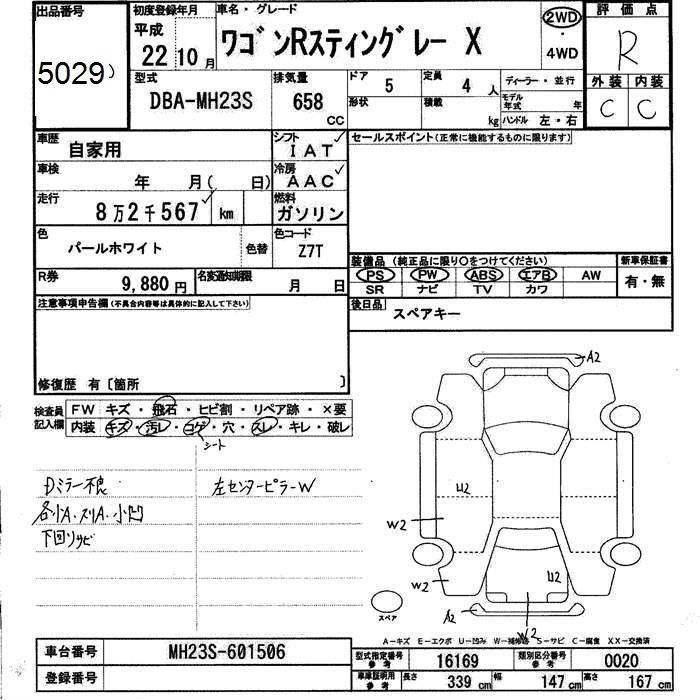 出品番号
5029
初度登録年月
平成
22 10月
車名・グレード
ワゴンRスティングレー X
2WD
・
4WD
評価点
R
外装 内装
C C
型式
DBA-MH23S
排気量
658
CC
ドア
5
定員
4 人
ディーラー・並行
形状
積載
kg
モデル年式
年
ハンドル 左・右
車歴
自家用
シフト
IAT
セールスポイント(正常に機能するものに限ります)
車検
年 月( 日)
冷房
AAC
走行
8万2千567 km
燃料
ガソリン
色
パールホワイト
色替
色コード
Z7T
装備品(純正品に限り○をつけてください)
新車保証書
PS PW ABS エアB AW
SR ナビ TV カワ
有・無
R券
9,880円
名変通知期限
月 日
後日品
スペアキー
注意事項申告欄(不具合内容等は具体的に記入して下さい)
修復歴 有〔箇所 〕
検査員記入欄
FW キズ・飛石・ヒビ割・リペア跡・×要
内装 キズ・汚レ・コゲ・穴・スレ・キレ・破レ
シート
Dミラー不良
各小A・スリA・小凹
下回りサビ
左センターピラーW
A2
U2
W2
W2
U2
A2
W2
スペア
A−キズ E−エクボ U−凹み W−補修跡 S−サビ C−腐食 XX−交換済
車台番号
MH23S-601506
登録番号
型式指定番号
参考
16169
類別区分番号
参考
0020
車庫証明用
参考
長さ 339 cm 幅 147 cm 高さ 167 cm